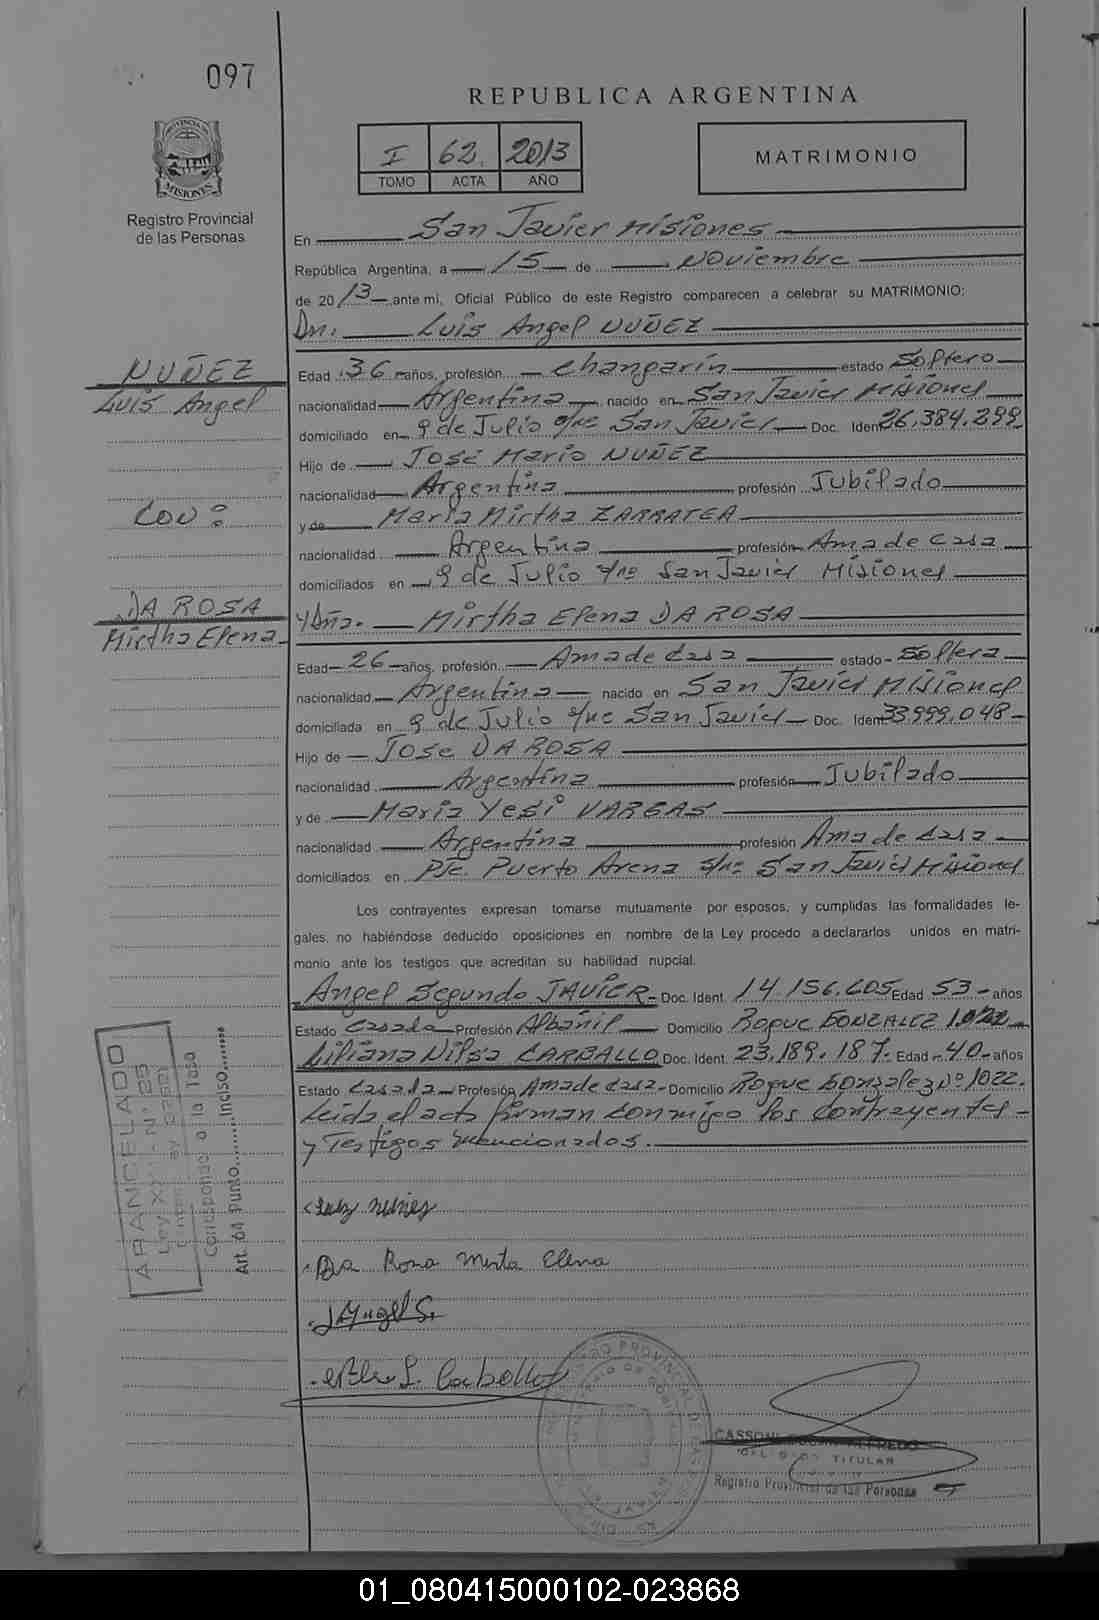 097
REPUBLICA ARGENTINA
I 62. 2013
TOMO ACTA AÑO
MATRIMONIO
PROVINCIA DE
MISIONES
Registro Provincial
de las Personas
En San Javier Misiones
República Argentina, a 15 de Noviembre
de 2013 ante mi, Oficial Público de este Registro comparecen a celebrar su MATRIMONIO:
Dn. Luis Angel NUÑEZ
NUÑEZ
Luis Angel
Edad 36 años, profesión Changarín estado Soltero
nacionalidad Argentina nacido en San Javier Misiones
domiciliado en 9 de Julio s/nº San Javier Doc. Ident 26.384.299
Hijo de José Mario NUÑEZ
nacionalidad Argentina profesión Jubilado
CON:
y de Maria Mirtha ZARRATEA
nacionalidad Argentina profesión Ama de casa
domiciliados en 9 de Julio s/nº San Javier Misiones
DA ROSA
Mirtha Elena
y Dña. Mirtha Elena DA ROSA
Edad 26 años, profesión Ama de casa estado Soltera
nacionalidad Argentina nacido en San Javier Misiones
domiciliada en 9 de Julio s/nº San Javier Doc. Ident 33.999.048
Hijo de Jose DA ROSA
nacionalidad Argentina profesión Jubilado
y de Maria Yesi VARGAS
nacionalidad Argentina profesión Ama de casa
domiciliados en Pje. Puerto Arena s/nº San Javier Misiones
Los contrayentes expresan tomarse mutuamente por esposos, y cumplidas las formalidades le-
gales, no habiéndose deducido oposiciones en nombre de la Ley procedo a declararlos unidos en matri-
monio ante los testigos que acreditan su habilidad nupcial.
Angel Segundo JAVIER Doc. Ident. 14.156.605 Edad 53 años
Estado Casado Profesión Albañil Domicilio Roque GONZALEZ 1022
Liliana Nilsa CARBALLO Doc. Ident. 23.189.187. Edad 40 años
Estado Casada Profesión Ama de casa Domicilio Roque Gonzalez Nº 1022.
Leída el acta firman conmigo los Contrayentes
y Testigos mencionados.
ARANCELADO
Corresponde a la Tasa
Art. 64 Punto Inciso
Da Rosa Mirta Elena
J Angel S.
Carballo
TITULAR
Registro Provincial de las Personas
01_080415000102-023868